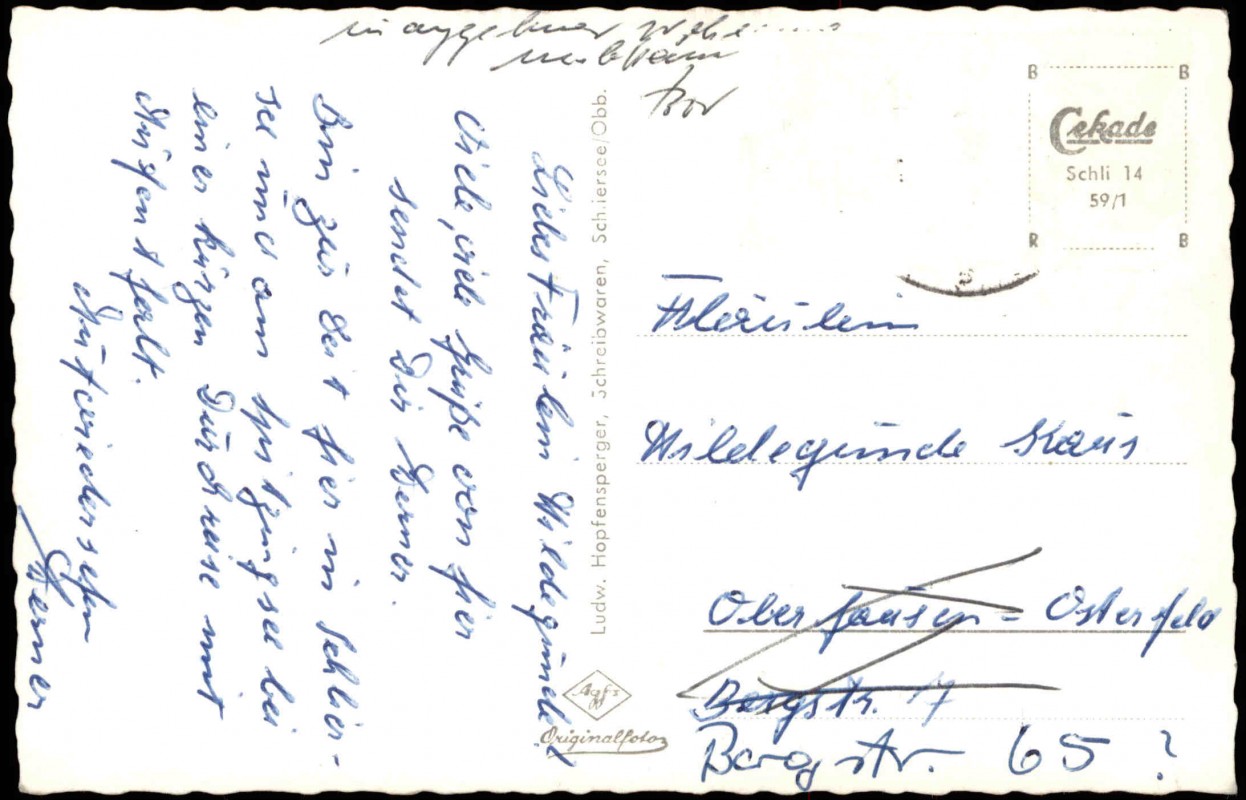 unbekannt
Liebes Fräulein Hildegunde!
Viele, viele Grüße von hier
sendet Dir Werner.
Bin zur Zeit hier in Schlier-
see und am Spitzingsee bei
einer kurzen Durchreise mit
Aufenthalt.
Aufwiedersehen
Werner
Ludw. Hopfensperger, Schreibwaren, Schliersee/Obb.
Agfa
Originalfoto
B B
Cekade
Schli 14
59/1
R B
Fräulein
Hildegunde Kaus
Oberhausen = Osterfeld
Bergstr. 17
Bergstr. 65 ?